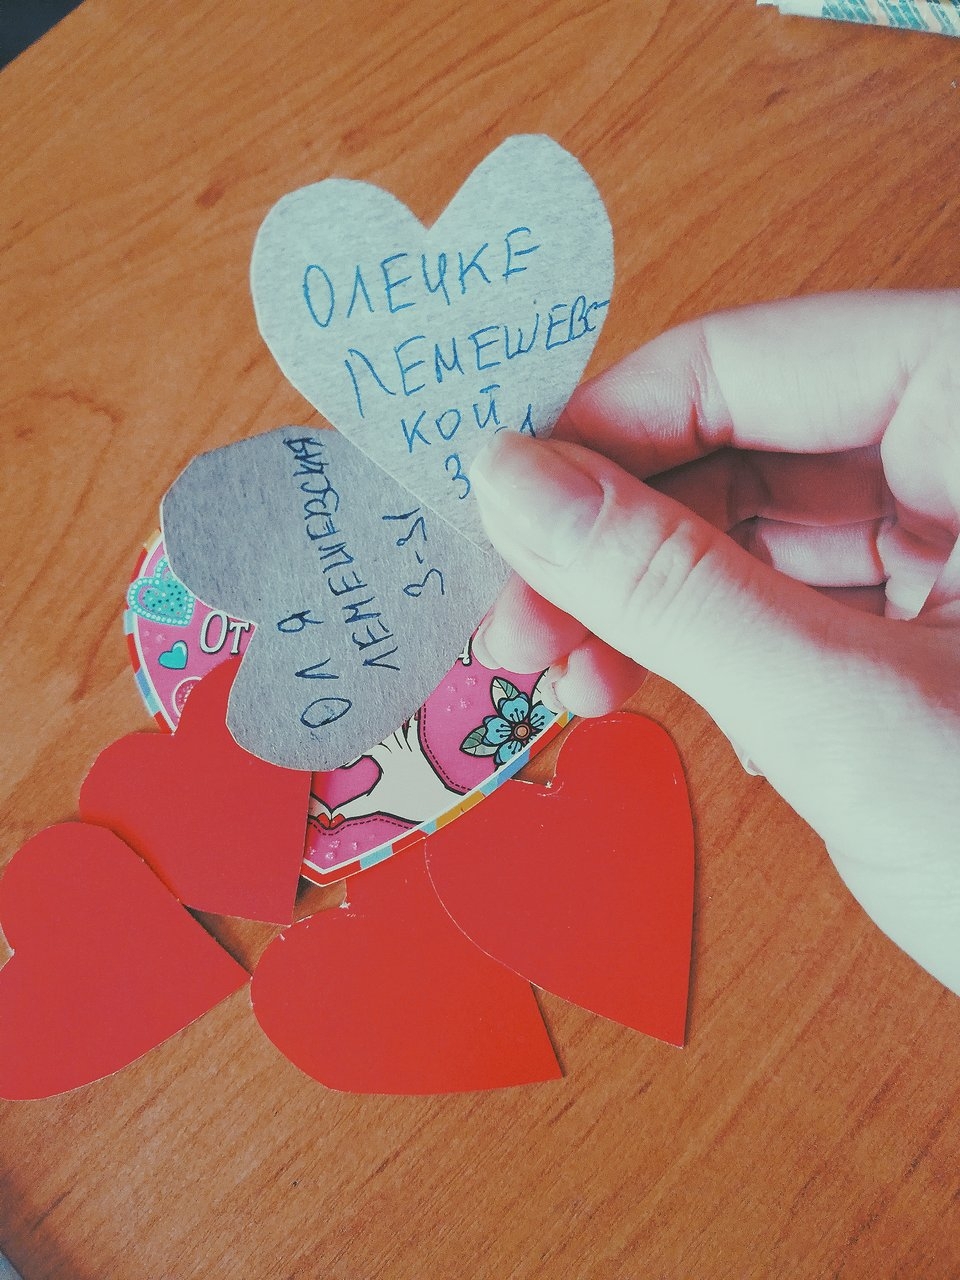 ОЛЕЧКЕ
ЛЕМЕШЕВС-
КОЙ
3
ОЛЯ
ЛЕМЕШЕВСКАЯ
3-Ы
От